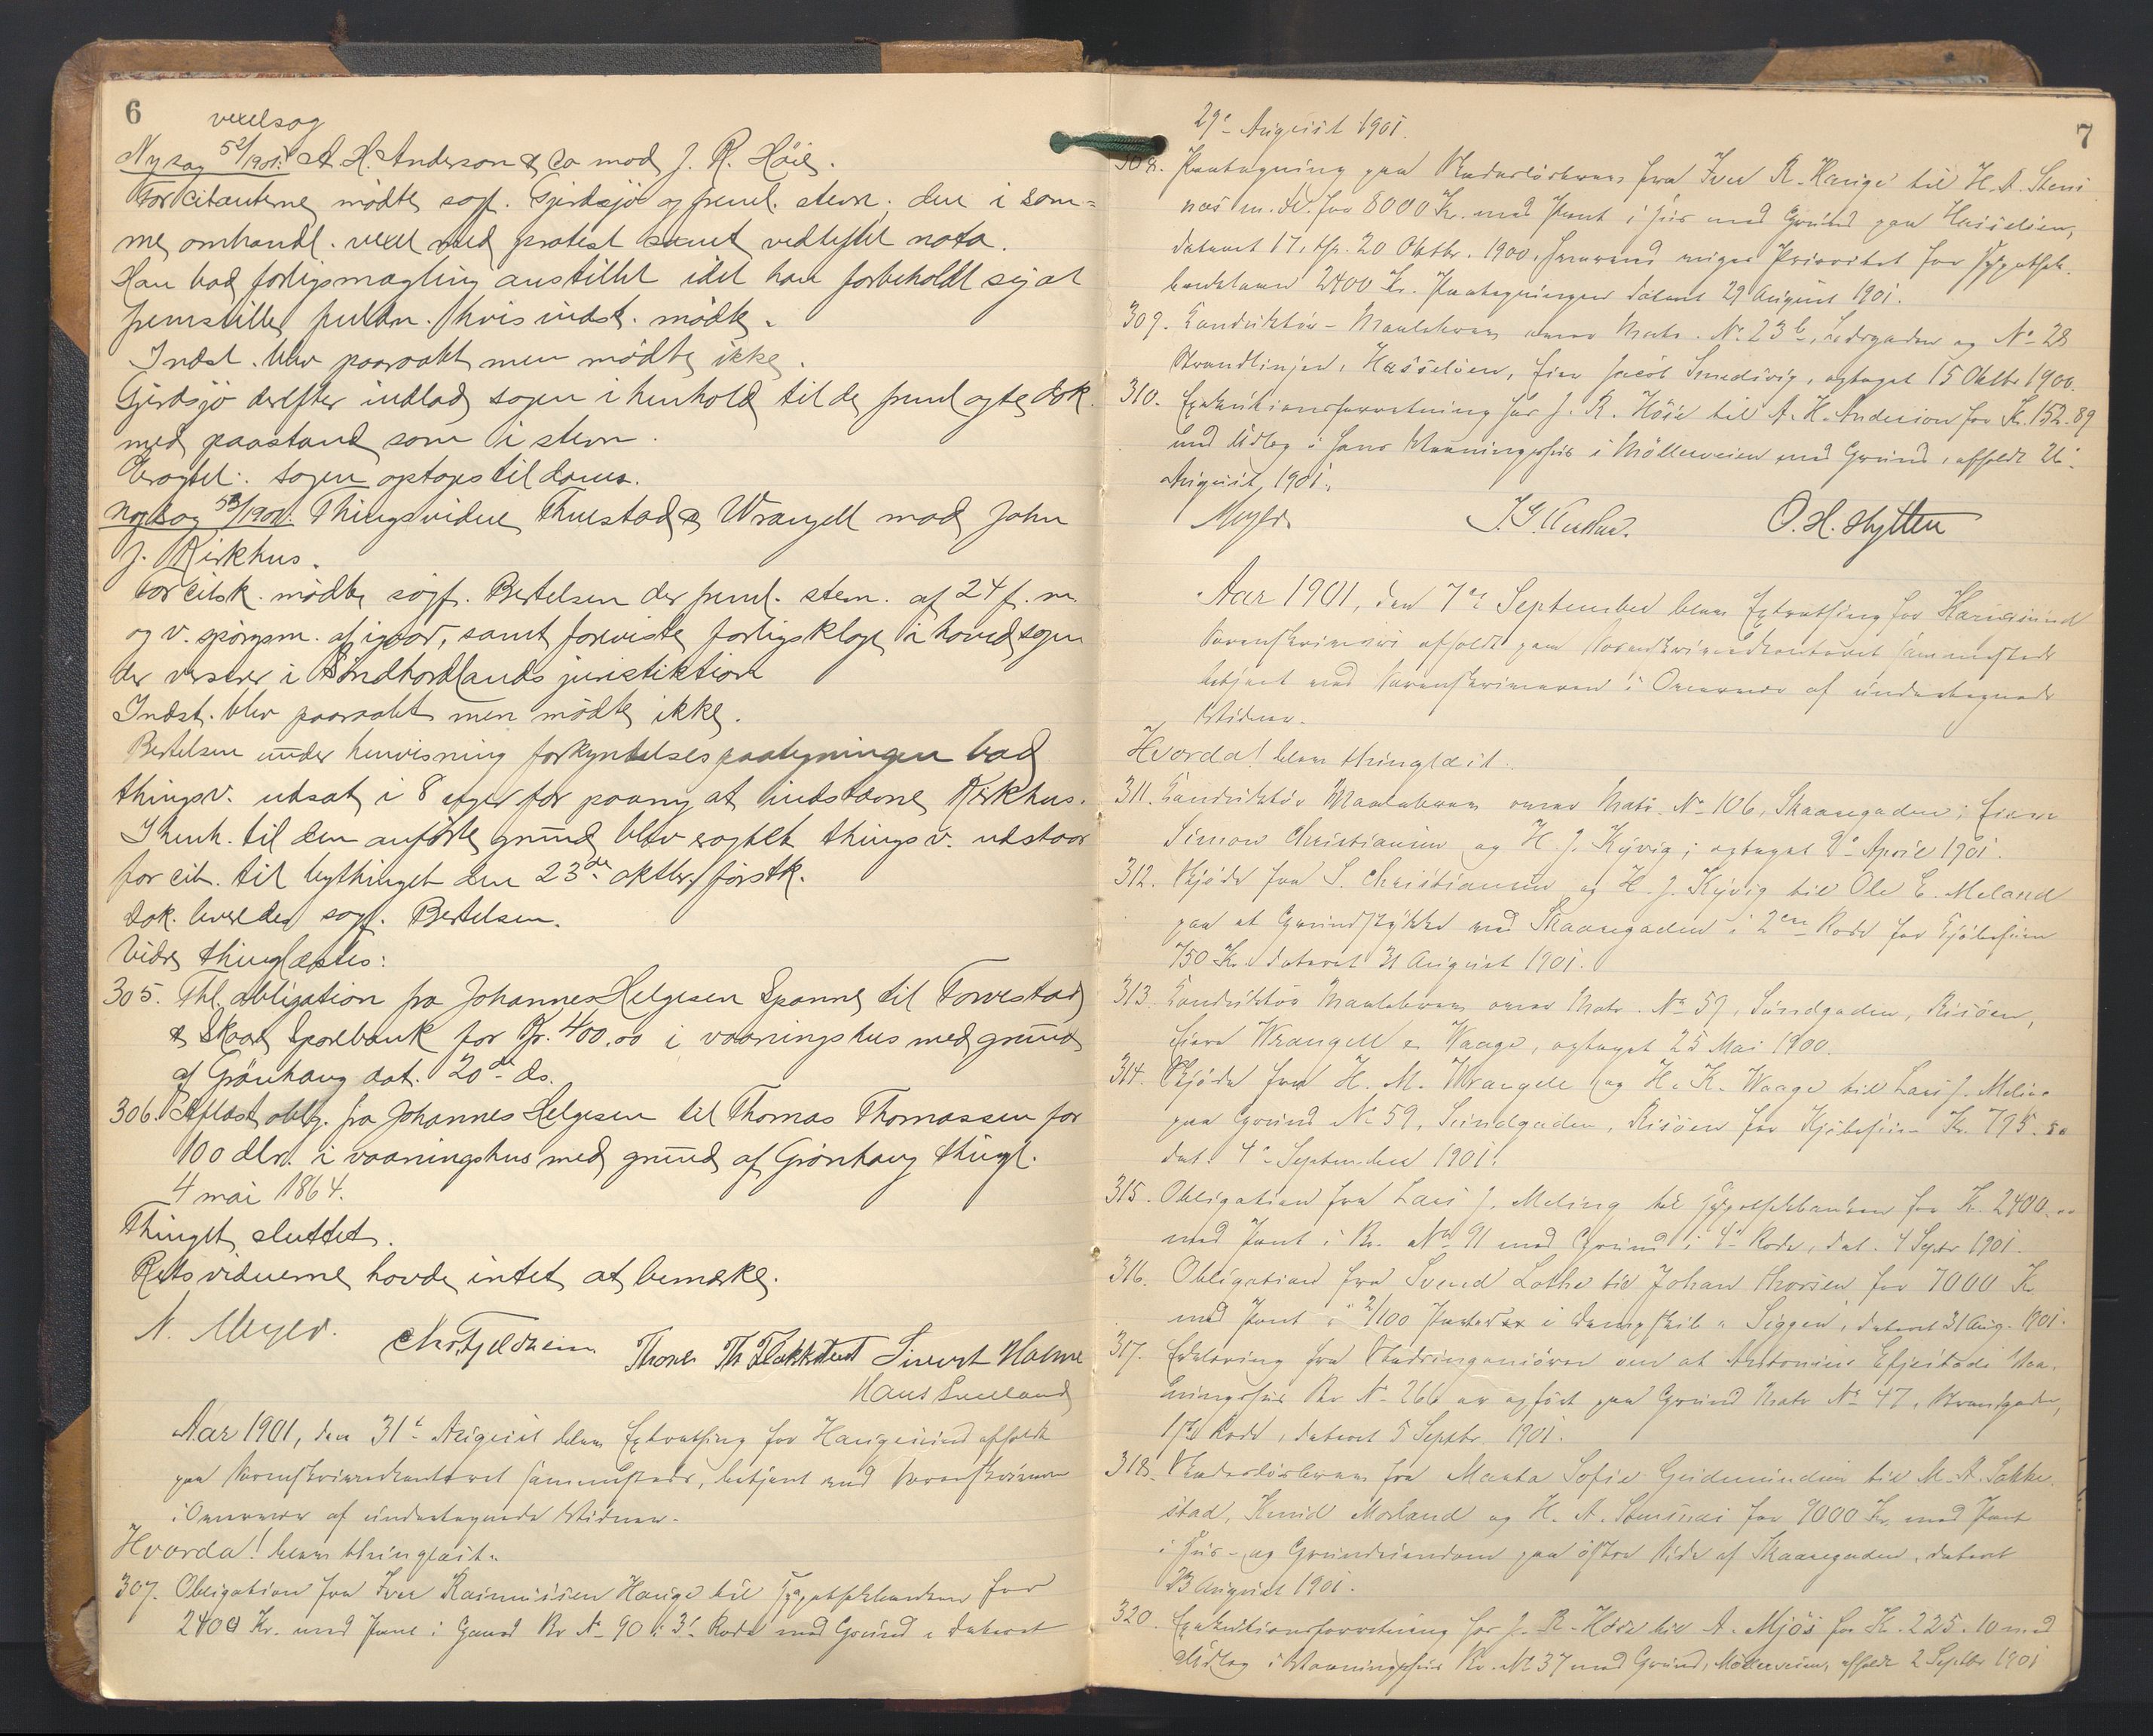 6
vexelsag
Ny sag 52/1901. A. H. Anderson & Co mod J. R. Höie.
For citanterne mødte sagf. Gjerdsjö og freml. stevn. den i sam-
me omhandl. vexel med protest samt vedheftet nota.
Han bad forligsmægling anstillet idet han forbeholdt sig at
fremstille fuldm. hvis indst. mødte.
Indst. blev paaraabt men mødte ikke.
Gjerdsjö derefter indlod sagen i henhold til de fremlagte dok.
med paastand som i stevn.
Eragtet: Sagen optages til doms.
Ny sag 53/1901. Thingsvidne Thuestad & Wrangell mod John
J. Kirkhus.
For citsk. mødte sagf. Bertelsen der freml. stevn. af 24 f. m.
og v. spørgsm. afigaar, samt foreviste forligsklage i hovedsagen
der verserer i Söndhordlands jurisdiktion
Indst. blev paaraabt men mødte ikke.
Bertelsen under henvisning forkyndelsespaategningen bad
thingsv. udsat i 8 uger for paany at indstævne Kirkhus.
I henh. til den anførte grund blev eragtet thingsv. udstaar
for cit. til bythinget den 23de oktbr. førstk.
Dok. leveredes sagf. Bertelsen.
Videre thinglæstes:
305. Thl. obligation fra Johannes Helgesen Spanne til Torvestad
& Skaare Sparebank for Kr. 400.00 i vaaningshus med grund
af Grönhaug dat. 20de ds.
306. Aflæst oblig. fra Johannes Helgesen til Thomas Thomassen for
100 dlr. i vaaningshus med grund af Grönhaug thingl.
4 mai 1864.
Thinget sluttet.
Retsvidnerne havde intet at bemærke.
N. Meyer. Chr. Fjeldheim. Thore Th. Flakkstad Sivert Holme
Hans Sveeland
Aar 1901, den 31te August blev Extrathing for Haugesund afholdt
paa Sorenskriverkontoret sammesteds, betjent med Sorenskriveren
i Overvær af undertegnede Vidner.
Hvorda! blev thinglæst.
307. Obligation fra Iver Rasmussen Hauge til Hypothekbanken for
2400 Kr. med Pant i Gaard Br No 90 i 3die Rode med Grund, dateret
7
29de August 1901.
308. Paategning paa Skadesløsbrev fra Iver R. Hauge til H. A. Stens
næs m. fl. for 8000 Kr. med Pant i Hus med Grund paa Hasseløen,
dateret 17, thl. 20 Oktbr. 1900, hvorved viges Prioritet for Hypothek-
banklaan 2400 Kr. Paategningen dateret 29 August 1901.
309. Konduktør-Maalebrev over Matr. No 23b, Nedregaden og No 28
Strandlinjen, Hasseløen, Eier Jacob Smedsvig, optaget 15 Oktbr 1900.
310. Exekutionsforretning hos J. R. Höie til A. H. Anderson for Kr. 152.89
med Udlæg i hans Vaaningshus i Möllerveien med Grund, afholdt 26.
August 1901.
Meyer. O. H. Hytten
Aar 1901, den 7de September blev Extrathing for Haugesund
Sorenskriveri afholdt paa Sorenskriverkontoret sammesteds
betjent med Sorenskriveren i Overvær af undertegnede
Vidner.
Hvorda! blev thinglæst.
311. Konduktör Maalebrev over Matr. No 106, Skaaregaden; Eiere
Simon Christiansen og H. J. Kyvig; optaget 9de April 1901.
312. Skjøde fra S. Christiansen og H. J. Kyvig til Ole E. Meland
paa et Grundstykke ved Skaaregaden i 2den Rode for Kjøbesum
750 Kr. dateret 31 August 1901.
313. Konduktør Maalebrev over Matr. No 59, Sundgaden, Risöen,
Eiere Wrangell & Waage, optaget 25 Mai 1900.
314. Skjøde fra H. M. Wrangell og H. K. Waage til Lars J. Meling
paa Grund No 59, Sundgaden, Risöen for Kjøbesum Kr. 795.50
dat. 4de September 1901.
315. Obligation fra Lars J. Meling til Hypothekbanken for Kr. 2400.00
med Pant i Br. No 91 med Grund i 4de Rode, dat. 4 Septr 1901.
316. Obligation fra Svend Lothe til Johan Thorsen for 7000 Kr.
med Pant i 2/100 Parter i Dampskib "Siggen", dateret 31 Aug. 1901.
317. Erklæring fra Stadsingeniøren om at Antonius Espestøls Vaa-
ningshus Br No 266 er opført paa Grund Matr No 47, Strandgaden,
1ste Rode, dateret 5 Septbr. 1901.
318. Skadesløsbrev fra Marta Sofie Gudmundsen til M. A. Sakke-
stad, Knud Morland og H. A. Stensnæs for 9000 Kr. med Pant
i Hus- og Grundeiendom paa østre Side af Skaaregaden, dateret
23 August 1901.
320. Exekutionsforretning hos J. R. Höie til A. Mjös for Kr. 225.10 med
Udlæg i Vaaningshus Br. No 37 med Grund, Möllerveien, afholdt 2 Septbr 1901